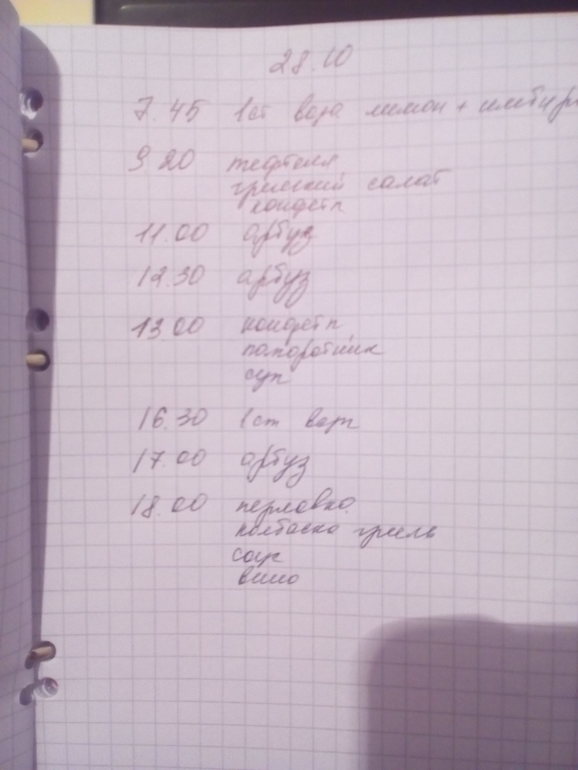 28.10
7.45 1ст вода лимон + имбирь
9 20 тефтели
греческий салат
конфета
11.00 арбуз
12.30 арбуз
13 00 конфета
папоротник
суп
16.30 1ст воды
17.00 арбуз
18.00 перловка
колбаска гриль
соус
вино